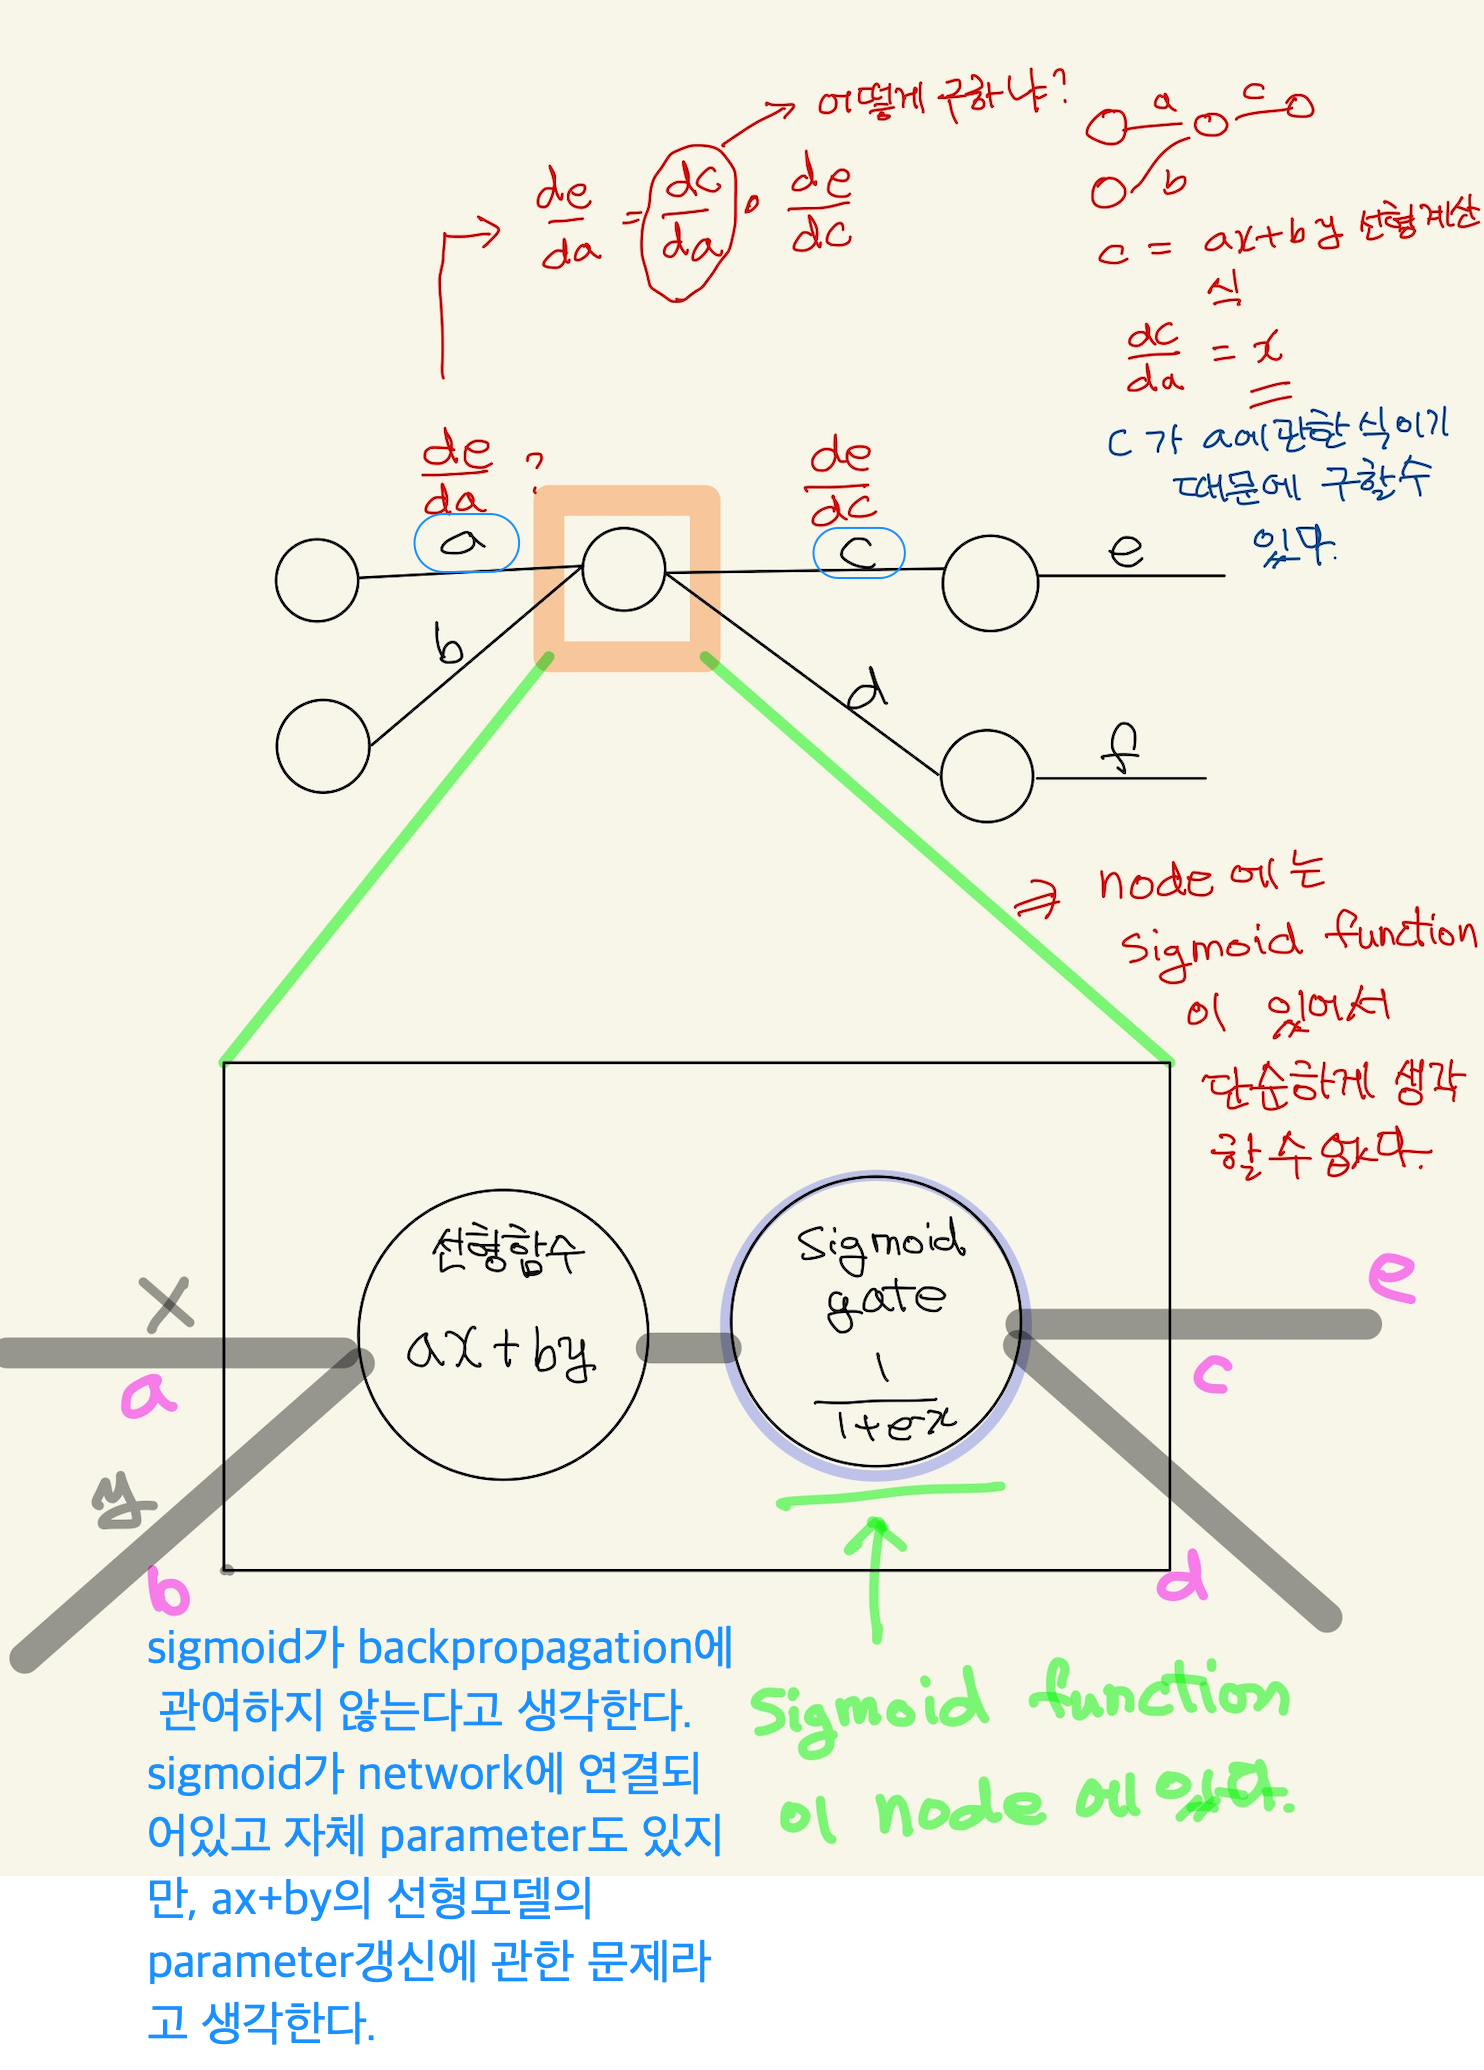 어떻게 구하냐?
de/da = dc/da · de/dc
a
c
b
c = ax+by 선형계산
식
dc/da = x
c가 a에 관한 식이기
때문에 구할수
있다.
de/da ?
de/dc
a
c
e
b
d
f
⇒ node 에는
sigmoid function
이 있어서
단순하게 생각
할 수 없다.
선형함수
ax+by
Sigmoid
gate
1/1+e-x
x
a
y
b
e
c
d
sigmoid가 backpropagation에
관여하지 않는다고 생각한다.
sigmoid가 network에 연결되
어있고 자체 parameter도 있지
만, ax+by의 선형모델의
parameter갱신에 관한 문제라
고 생각한다.
Sigmoid function
이 node에 있다.